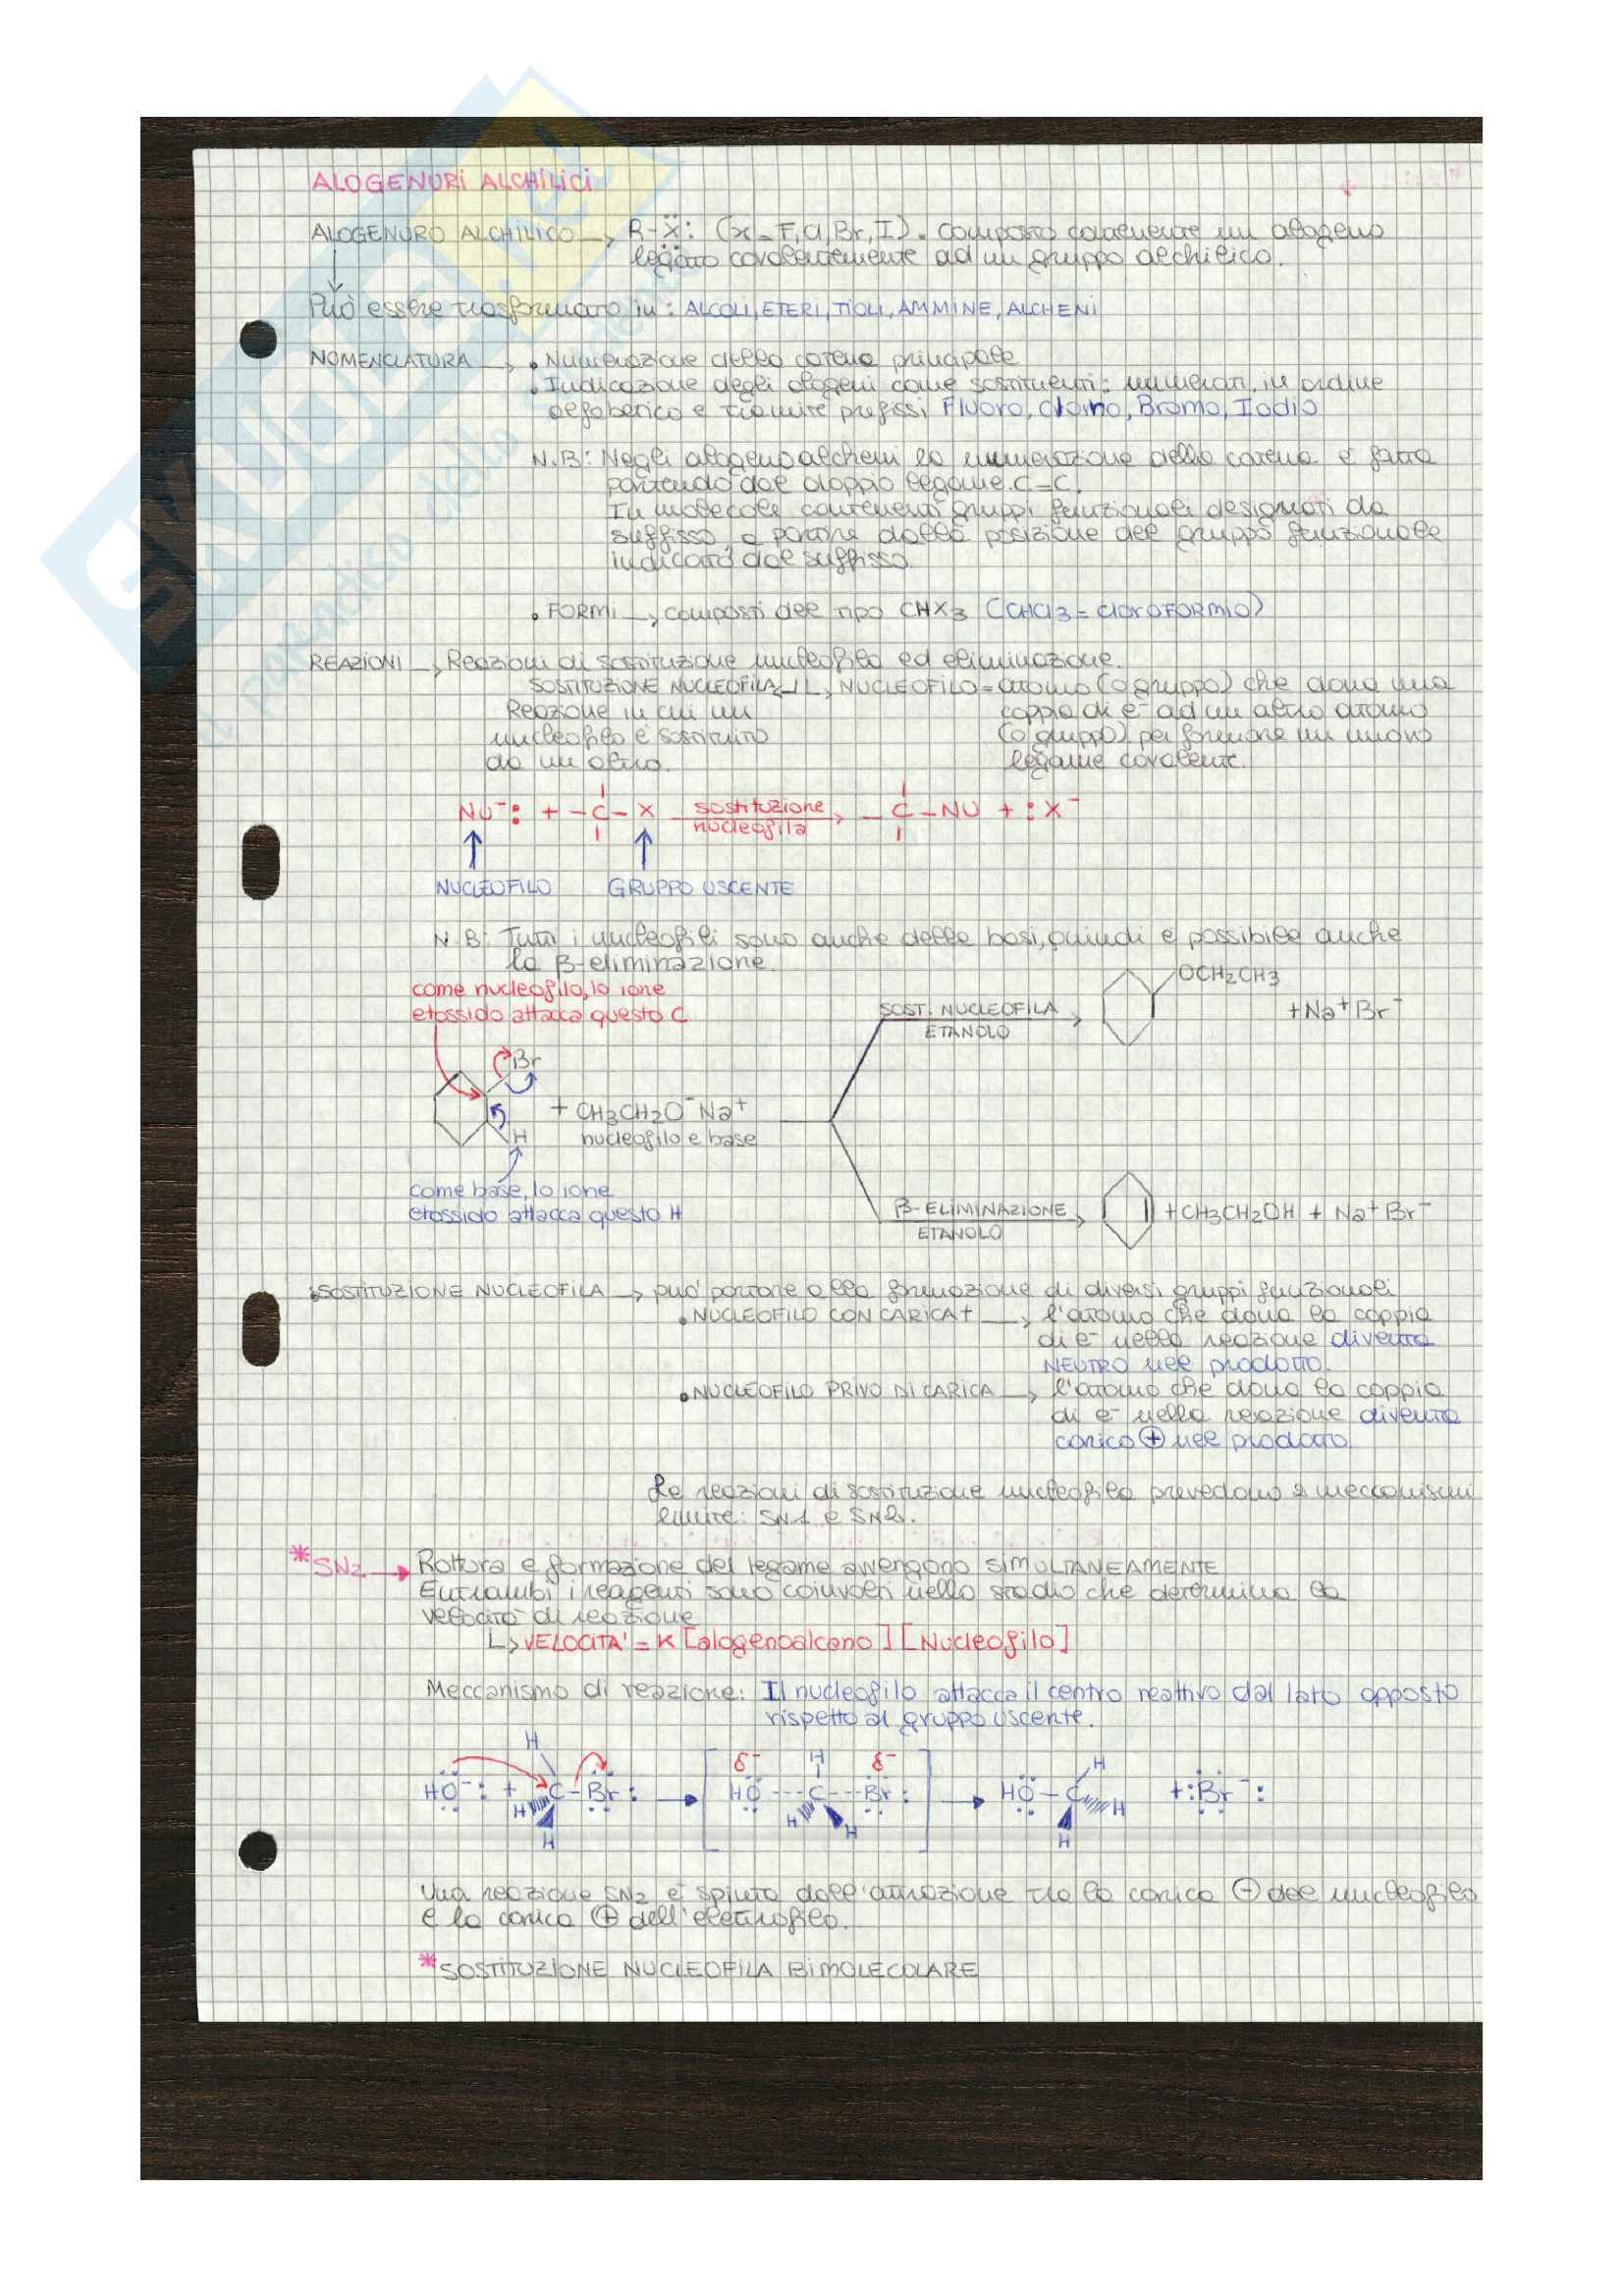 ALOGENURI ALCHILICI
ALOGENURO ALCHILICO → R-Ẍ: (x = F, Cl, Br, I). Composto contenente un alogeno
legato covalentemente ad un gruppo alchilico.
Può essere trasformato in: ALCOLI, ETERI, TIOLI, AMMINE, ALCHENI
NOMENCLATURA → • Numerazione della catena principale
• Indicazione degli alogeni come sostituenti: numerati in ordine
alfabetico e tramite prefissi Fluoro, Cloro, Bromo, Iodio
N.B: Negli alogenoalcheni la numerazione della catena è fatta
partendo dal doppio legame C=C.
In molecole contenenti gruppi funzionali designati da
suffisso, a partire dalla posizione del gruppo funzionale
indicato dal suffisso.
• FORMI → composti del tipo CHX3 (CHCl3 = cloroFORMIO)
REAZIONI → Reazioni di sostituzione nucleofila ed eliminazione.
SOSTITUZIONE NUCLEOFILA ↵ ↳ NUCLEOFILO = atomo (o gruppo) che dona una
Reazione in cui un coppia di e⁻ ad un altro atomo
nucleofilo è sostituito (o gruppo) per formare un nuovo
da un altro. legame covalente.
Nu⁻: + -C-X sostituzione nucleofila → -C-NU + :X⁻
NUCLEOFILO GRUPPO USCENTE
N.B: Tutti i nucleofili sono anche delle basi, quindi è possibile anche
la β-eliminazione.
come nucleofilo, lo ione
etossido attacca questo C
SOST. NUCLEOFILA
ETANOLO
OCH2CH3
+ Na⁺ Br⁻
Br
H
+ CH3CH2O⁻Na⁺
nucleofilo e base
come base, lo ione
etossido attacca questo H
β-ELIMINAZIONE
ETANOLO
+ CH3CH2OH + Na⁺ Br⁻
SOSTITUZIONE NUCLEOFILA → può portare alla formazione di diversi gruppi funzionali
• NUCLEOFILO CON CARICA + → l'atomo che dona la coppia
di e⁻ nella reazione diventa
NEUTRO nel prodotto.
• NUCLEOFILO PRIVO DI CARICA → l'atomo che dona la coppia
di e⁻ nella reazione diventa
carico ⊕ nel prodotto
Le reazioni di sostituzione nucleofila prevedono 2 meccanismi
limite: SN1 e SN2.
* SN2 → Rottura e formazione del legame avvengono SIMULTANEAMENTE
Entrambi i reagenti sono coinvolti nello stadio che determina la
velocità di reazione
↳ VELOCITA' = K [alogenoalcano] [Nucleofilo]
Meccanismo di reazione: Il nucleofilo attacca il centro reattivo dal lato opposto
rispetto al gruppo uscente.
H δ⁻ H δ⁻ H
HO⁻: + C-Br: → [HO---C---Br:] → HO-C H + :Br⁻:
H H H H H
Una reazione SN2 è spinta dall'attrazione tra la carica ⊖ del nucleofilo
e la carica ⊕ dell'elettrofilo.
* SOSTITUZIONE NUCLEOFILA BIMOLECOLARE